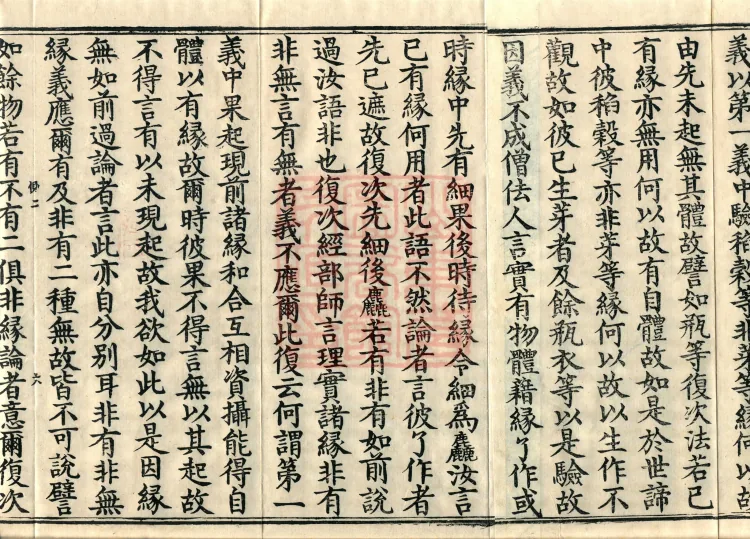 義以第一義中驗稻穀等非芽等緣何以故
由先未起無其體故譬如瓶等復次法若已
有緣亦無用何以故有自體故如是於世諦
中彼稻穀等亦非芽等緣何以故以生作不
觀故如彼已生芽者及餘瓶衣等以是驗故
因義不成僧佉人言實有物體藉緣了作或
時緣中先有細果後時待緣令細為麤汝言
已有緣何用者此語不然論者言彼了作者
先已遮故復次先細後麤若有非有如前說
過汝語非也復次經部師言理實諸緣非有
非無言有無者義不應爾此復云何謂第一
義中果起現前諸緣和合互相資攝能得自
體以有緣故爾時彼果不得言無以其起故
不得言有以未現起故我欲如此以是因緣
無如前過論者言此亦自分別耳非有非無
緣義應爾有及非有二種無故皆不可說譬
二 六
如餘物若有不有二俱非緣論者意爾復次